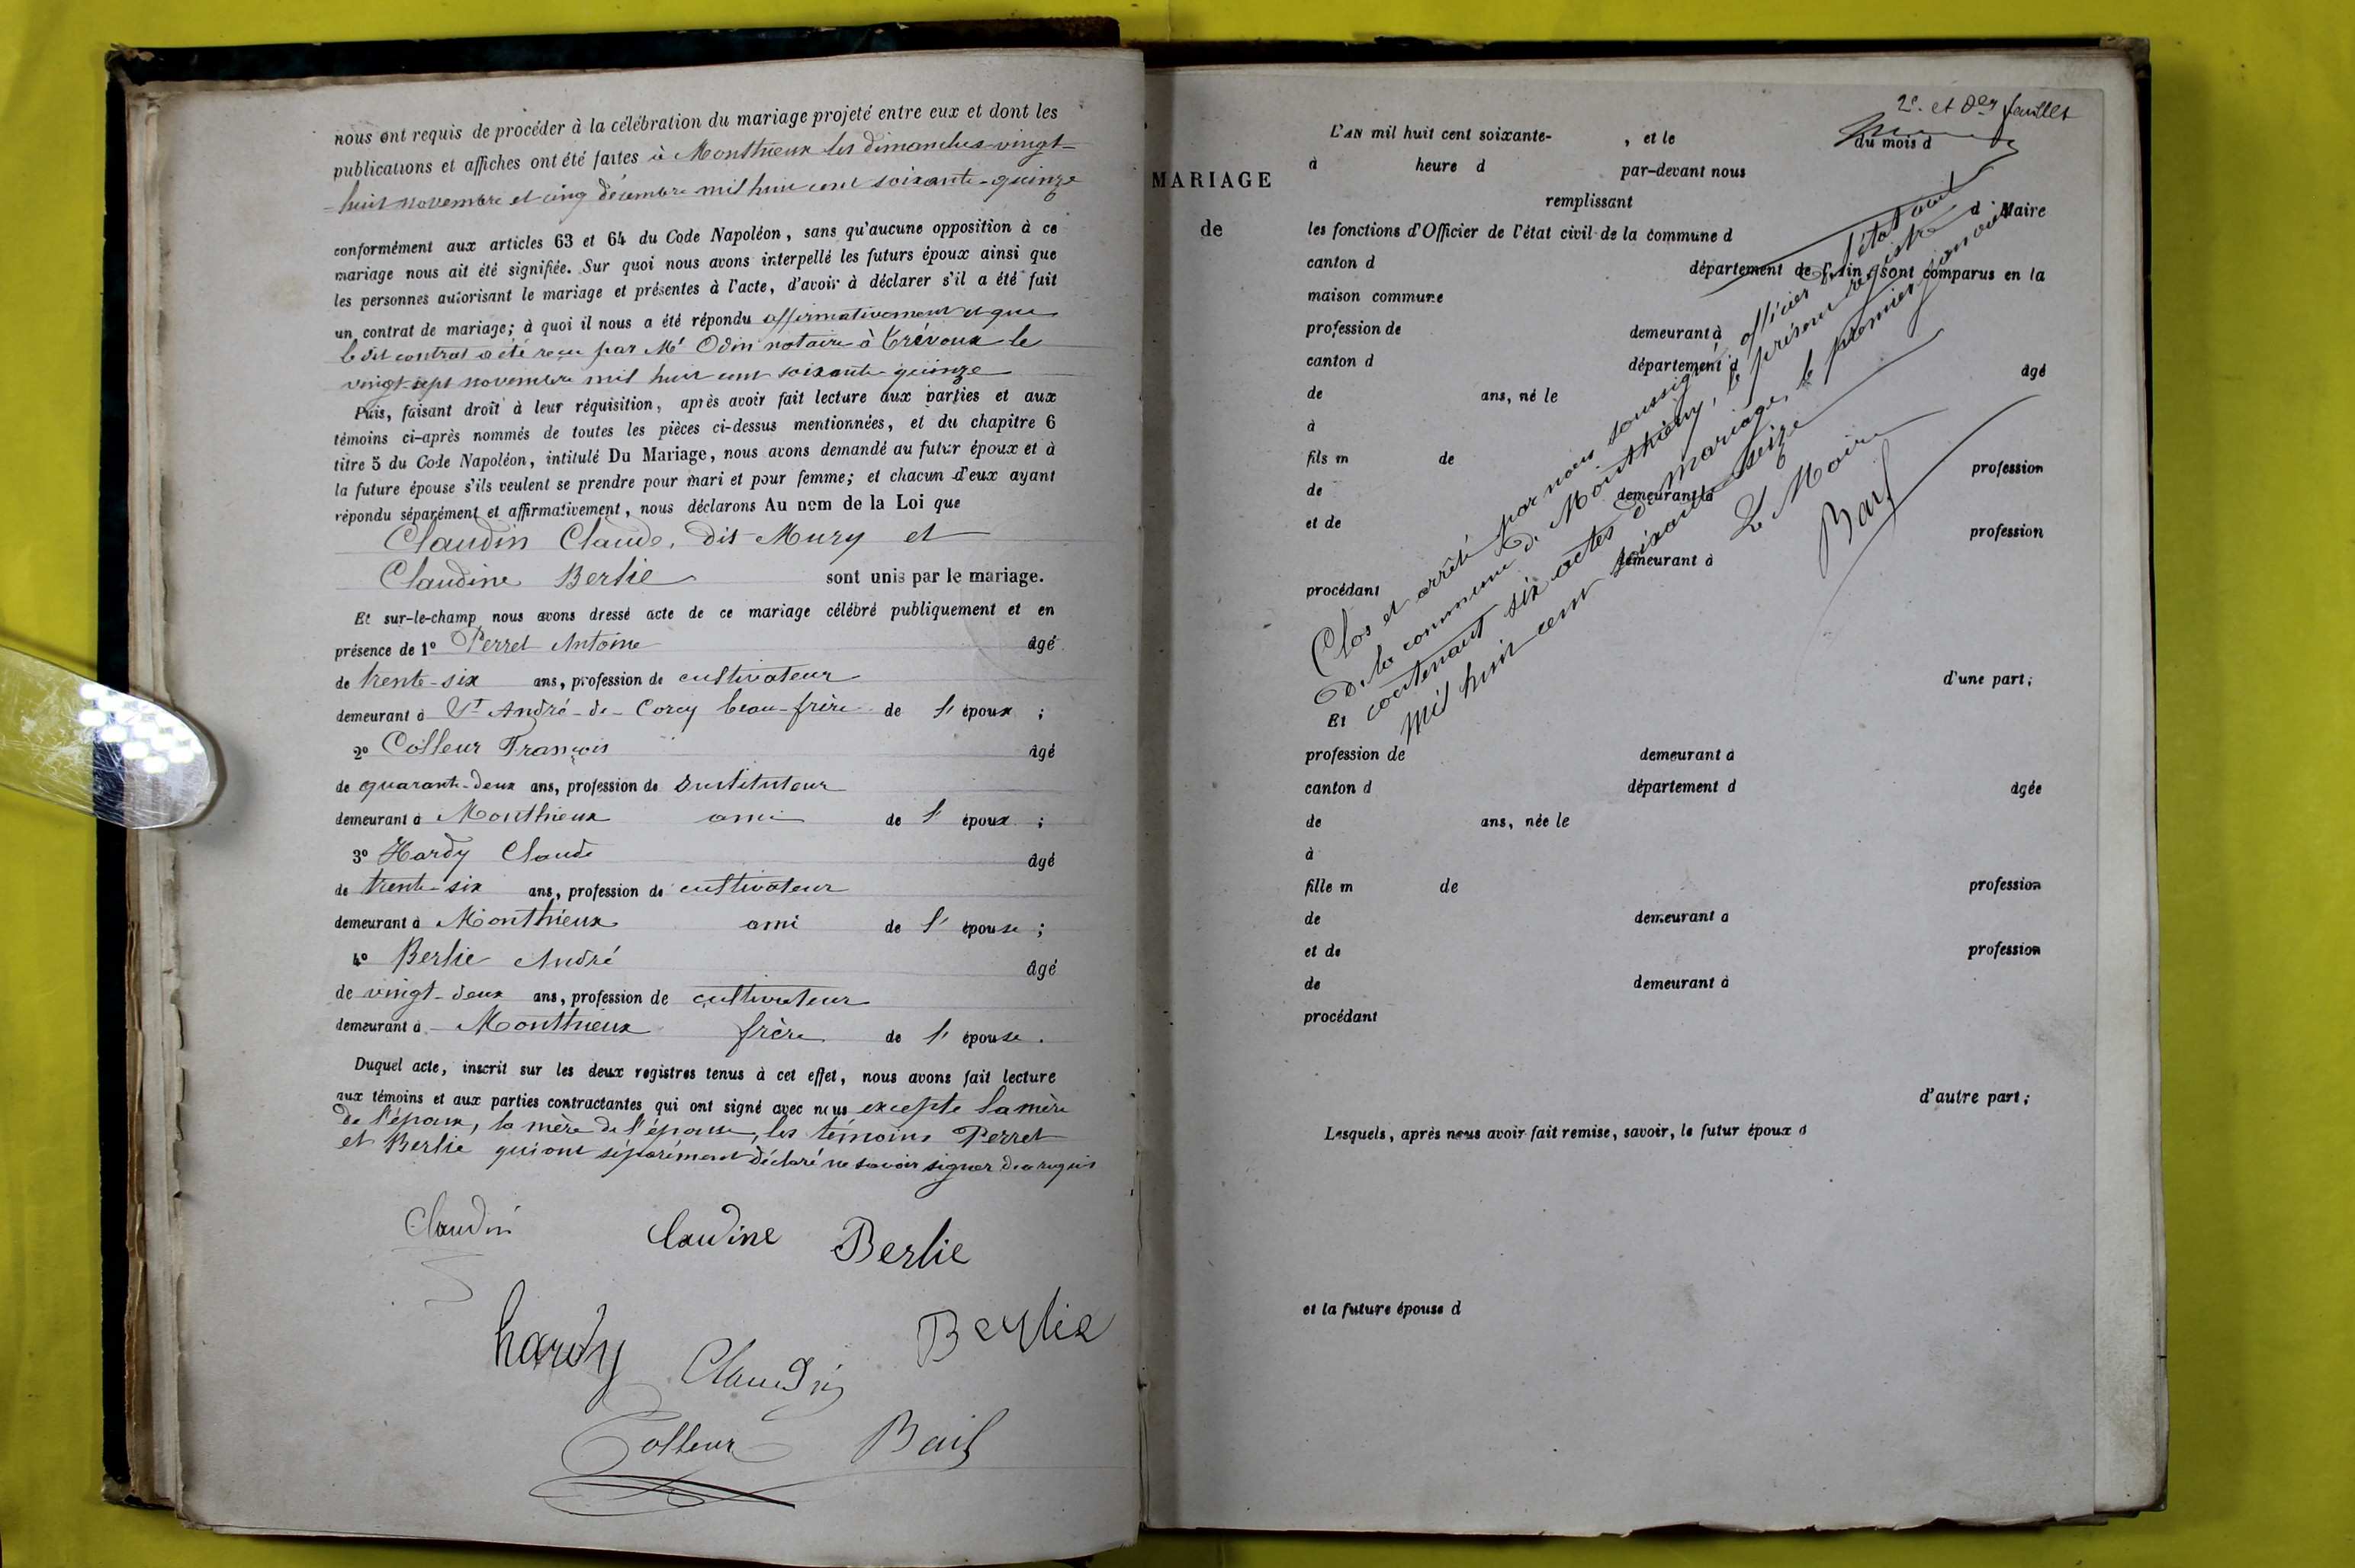 nous ont requis de procéder à la célébration du mariage projeté entre eux et dont les
publications et affiches ont été faites à Monthieux les dimanches vingt-
huit novembre et cinq décembre mil huit cent soixante-quinze
conformément aux articles 63 et 64 du Code Napoléon, sans qu'aucune opposition à ce
mariage nous ait été signifiée. Sur quoi nous avons interpellé les futurs époux ainsi que
les personnes autorisant le mariage et présentes à l'acte, d'avoir à déclarer s'il a été fait
un contrat de mariage; à quoi il nous a été répondu affirmativement et que
le dit contrat a été reçu par Me Odin notaire à Trévoux le
vingt-sept novembre mil huit cent soixante quinze
Puis, faisant droit à leur réquisition, après avoir fait lecture aux parties et aux
témoins ci-après nommés de toutes les pièces ci-dessus mentionnées, et du chapitre 6
titre 5 du Code Napoléon, intitulé Du Mariage, nous avons demandé au futur époux et à
la future épouse s'ils veulent se prendre pour mari et pour femme; et chacun d'eux ayant
répondu séparément et affirmativement, nous déclarons Au nom de la Loi que
Claudin Claude, dit Mury et
Claudine Berlie sont unis par le mariage.
Et sur-le-champ nous avons dressé acte de ce mariage célébré publiquement et en
présence de 1° Perret Antoine âgé
de trente-six ans, profession de cultivateur
demeurant à St André-de-Corcy beau-frère de l'époux ;
2° Colleur François âgé
de quarante-deux ans, profession de Instituteur
demeurant à Monthieux ami de l'époux ;
3° Hardy Claude âgé
de trente-six ans, profession de cultivateur
demeurant à Monthieux ami de l'épouse ;
4° Berlie André âgé
de vingt-deux ans, profession de cultivateur
demeurant à Monthieux frère de l'épouse.
Duquel acte, inscrit sur les deux registres tenus à cet effet, nous avons fait lecture
aux témoins et aux parties contractantes qui ont signé avec nous excepté la mère
de l'époux, la mère de l'épouse, les témoins Perret
et Berlie qui ont séparément déclaré ne savoir signer de ce requis
Claudin Claudine Berlie
hardy Claudin Berlie
Colleur Bail
2e et der feuillet
L'AN mil huit cent soixante- , et le du mois d
à heure d par-devant nous
MARIAGE
remplissant
de
les fonctions d'Officier de l'état civil de la commune d
d Maire
canton d département de l'Ain, sont comparus en la
maison commune
profession de demeurant à
canton d département d
âgé
de ans, né le
à
fils m de profession
de demeurant à
et de profession
demeurant à
procédant
Clos et arrêté par nous soussigné, officier de l'état civil
de la commune de Monthieux, le présent registre
contenant six actes de mariage, le premier janvier
mil huit cent soixante seize
Le Maire
Bail
d'une part;
Et
profession de demeurant à
canton d département d âgée
de ans, née le
à
fille m de profession
de demeurant à
et de profession
de demeurant à
procédant
d'autre part;
Lesquels, après nous avoir fait remise, savoir, le futur époux d
et la future épouse d